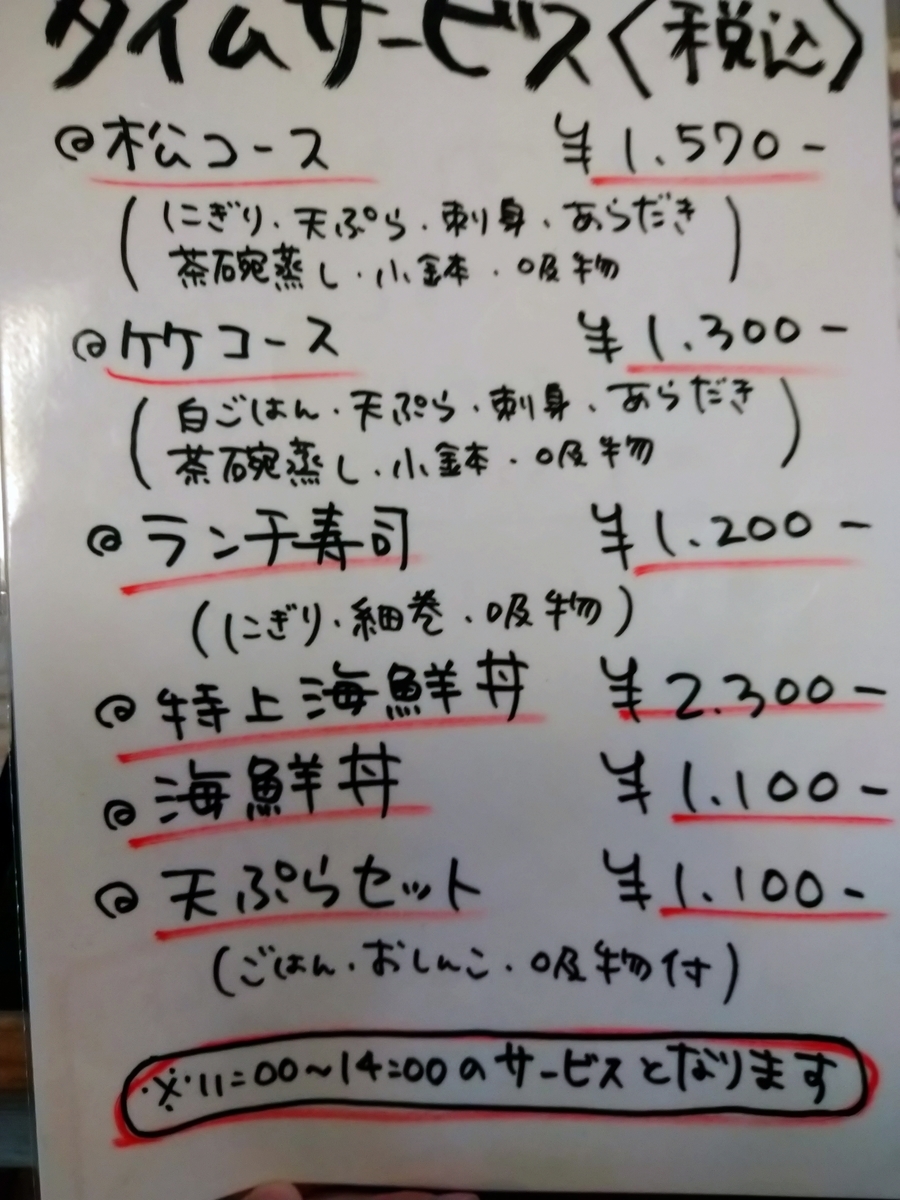 タイムサービス〈税込〉
@松コース ¥1.570-
(にぎり・天ぷら・刺身・あらだき
茶碗蒸し・小鉢・吸物)
@竹コース ¥1.300-
(白ごはん・天ぷら・刺身・あらだき
茶碗蒸し・小鉢・吸物)
@ランチ寿司 ¥1.200-
(にぎり・細巻・吸物)
@特上海鮮丼 ¥2.300-
@海鮮丼 ¥1.100-
@天ぷらセット ¥1.100-
(ごはん・おしんこ・吸物付)
※11:00～14:00のサービスとなります